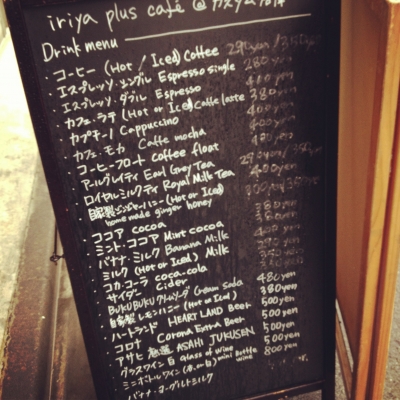 iriya plus café @ カスタム倉庫
Drink menu
・コーヒー (Hot / Iced) Coffee 290yen / 350yen
・エスプレッソ・シングル Espresso single 280 yen
・エスプレッソ・ダブル Espresso 400yen
・カフェ・ラテ (Hot or Iced) Caffe latte 380yen
・カプチーノ Cappuccino 400yen
・カフェ・モカ Caffe mocha 400yen
・コーヒーフロート coffee float
・アールグレイティ Earl Grey Tea
・ロイヤルミルクティ Royal Milk Tea
・自家製ジンジャーハニー (Hot or Iced)
homemade ginger honey
・ココア cocoa 380yen
・ミント・ココア Mint cocoa 400yen
・バナナ・ミルク Banana Milk
・ミルク (Hot or Iced) Milk
・コカ・コーラ coca-cola
・サイダー Cider
・BUKUBUKUクリームソーダ Cream Soda 480yen
・自家製レモンハニー (Hot or Iced) 380yen
・ハートランド HEARTLAND Beer 500yen
・コロナ Corona Extra Beer 500yen
・アサヒ 熟撰 ASAHI JUKUSEN 500yen
・グラスワイン Glass of wine 500yen
・ミニボトルワイン mini bottle wine 800yen
・バナナ・ヨーグルトミルク